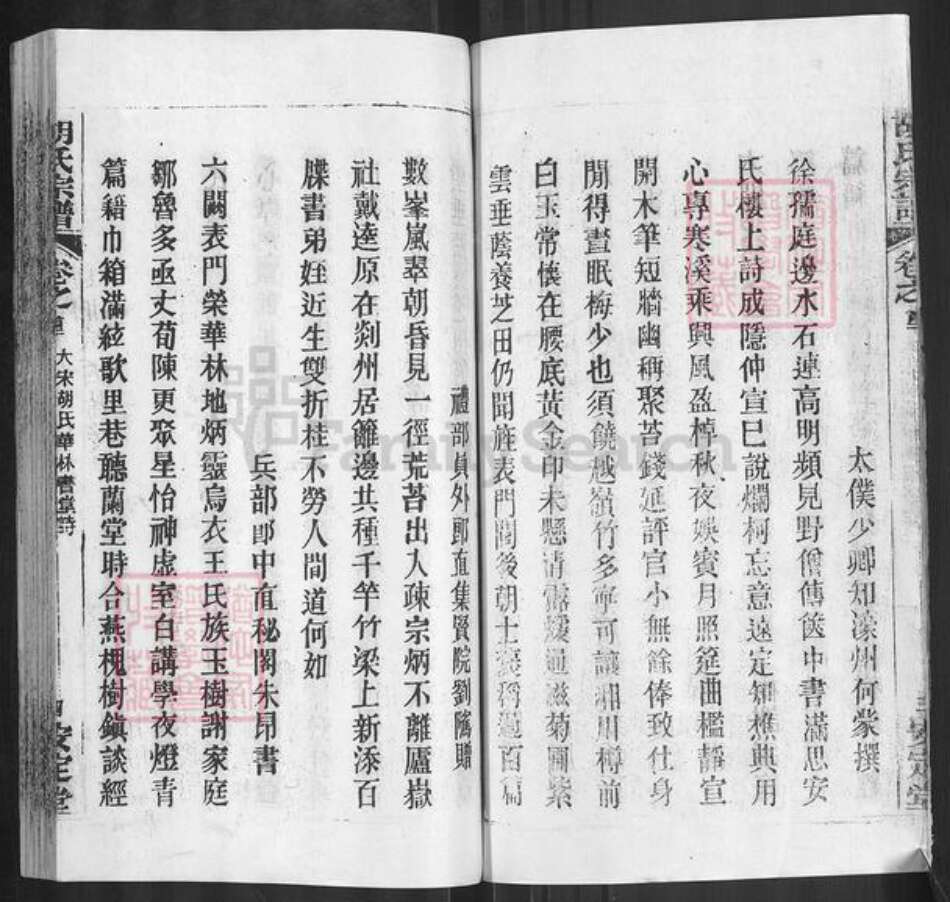 太僕少卿知濠州何蒙撰
徐孺庭邊水石連高明頻見野僧傳篋中書滿思安
氏樓上詩成隱仲宣巳說爛柯忘意遠定知樵典用
心專寒溪乘興風盈棹秋夜娛賓月照筵曲檻靜宣
開木筆短牆幽稱聚苔錢延評官小無餘俸致仕身
閒得晝眠梅少也須饒越嶺竹多寧可讓湘川樽前
白玉常懷在腰底黃金印未懸清露緩通滋菊圃紫
雲垂蔭養芝田仍聞旌表門閭後朝士褒稱過百篇
禮部員外郎直集賢院劉隲贈
數峯嵐翠朝昏見一徑荒苔出入疎宗炳不離廬嶽
社戴逵原在剡州居籬邊共種千竿竹梁上新添百
牒書弟姪近生雙折桂不勞人間道何如
兵部郎中直秘閣朱昂書
六闕表門榮華林地炳靈烏衣王氏族玉樹謝家庭
鄒魯多函丈荀陳更聚星怡神虛室白講學夜燈青
篇籍巾箱滿絃歌里巷聽蘭堂時合燕槐樹鎮談經
胡氏宗譜
卷之
大宋胡氏華林書堂詩
安定堂
FamilySearch